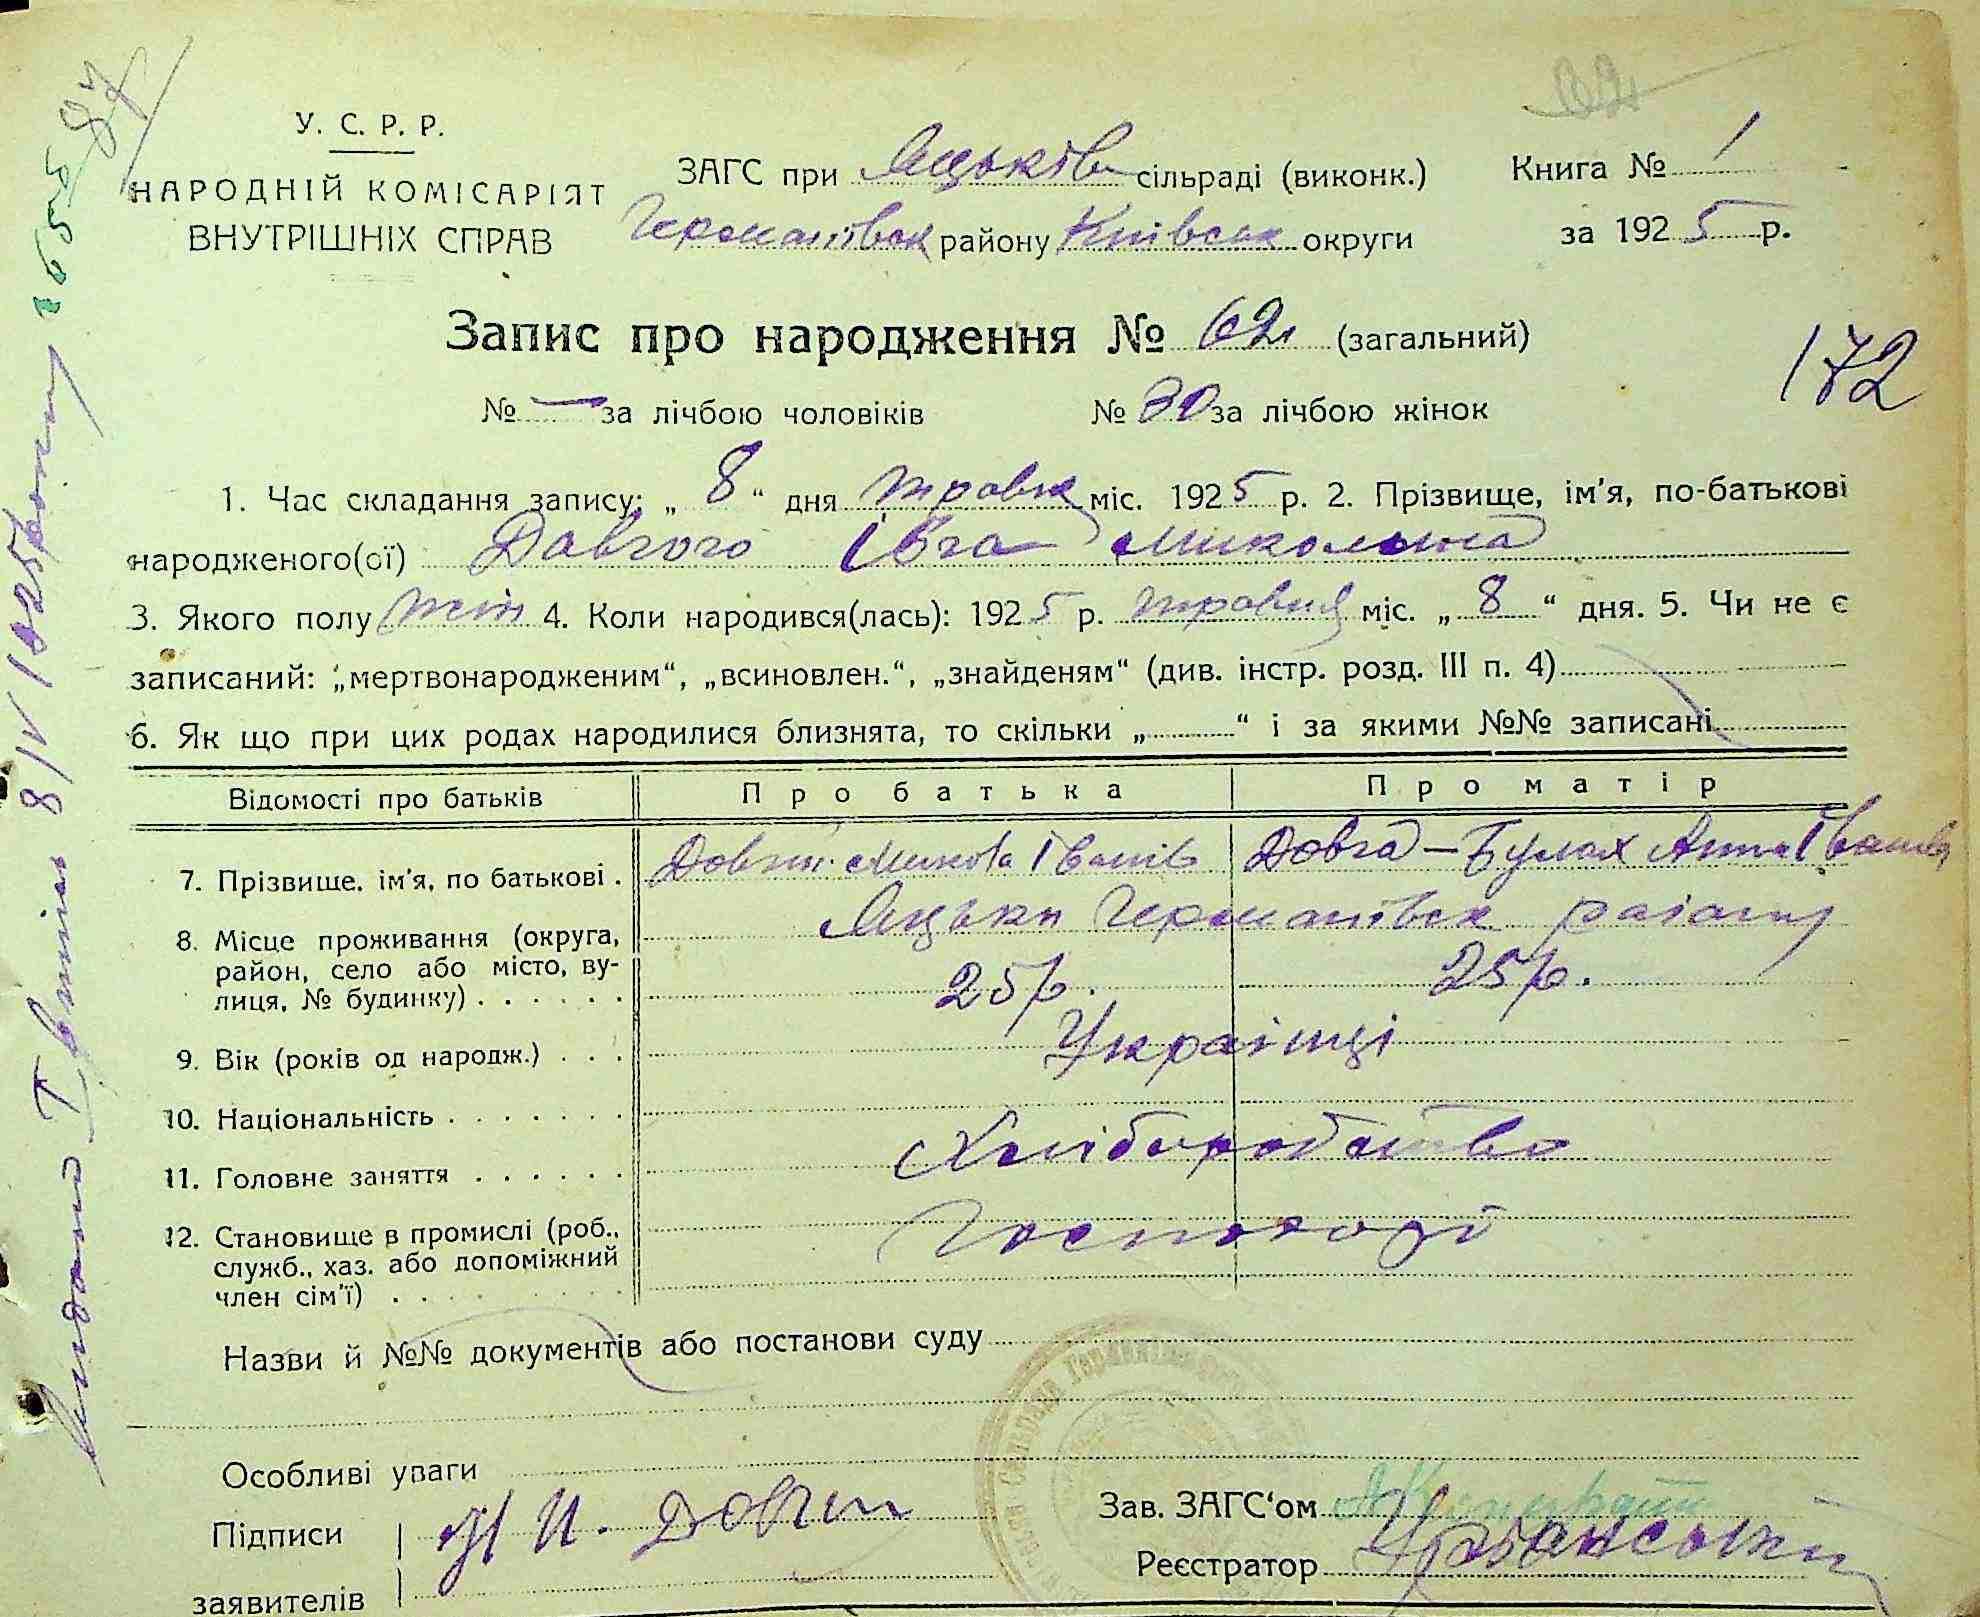 62
У. С. Р. Р.
НАРОДНІЙ КОМІСАРІЯТ
ВНУТРІШНІХ СПРАВ
ЗАГС при Яцьків сільраді (виконк.)
Германівськ району Київськ округи
Книга № 1
за 1925 р.
Запис про народження № 62 (загальний)
172
№ — за лічбою чоловіків № 30 за лічбою жінок
1. Час складання запису: „ 8 “ дня травня міс. 1925 р. 2. Прізвище, ім'я, по-батькові
народженого(ої) Довгого Івга Миколина
3. Якого полу жін 4. Коли народився(лась): 1925 р. травня міс. „ 8 “ дня. 5. Чи не є
записаний: „мертвонародженим“, „всиновлен.“, „знайденям“ (див. інстр. розд. III п. 4)
6. Як що при цих родах народилися близнята, то скільки „ “ і за якими №№ записані
Відомості про батьків Про батька Про матір
7. Прізвище, ім'я, по батькові . Довгий Микола Іванів Довга — Булах Анна Іванівна
8. Місце проживання (округа, район, село або місто, вулиця, № будинку) . . . . . . Яцьки Германівськ района
9. Вік (років од народж.) . . . 25 р. 25 р.
10. Національність . . . . . . . Українці
11. Головне заняття . . . . . . Хліборобство
12. Становище в промислі (роб., служб., хаз. або допоміжний член сім'ї) . . . . Господарі
Назви й №№ документів або постанови суду
Особливі уваги
Підписи
заявителів
Довгий
Зав. ЗАГС'ом
Реєстратор